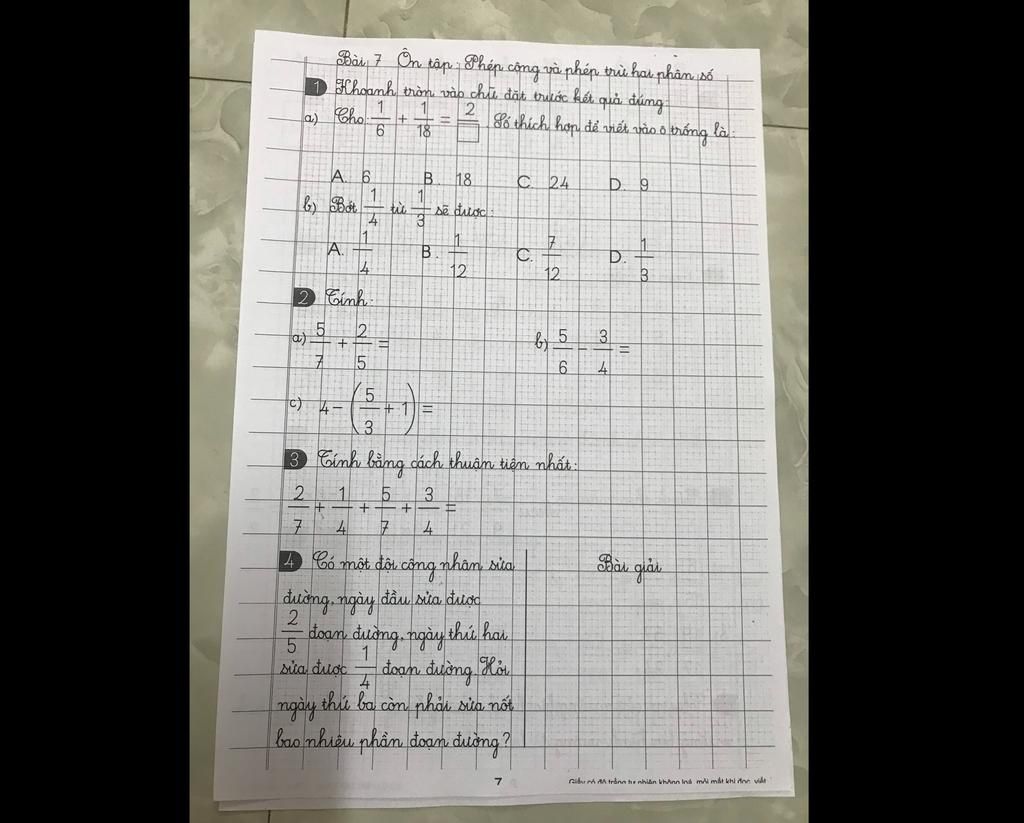 Bài 7 Ôn tập: Phép cộng và phép trừ hai phân số
1 Khoanh tròn vào chữ đặt trước kết quả đúng:
a) Cho: 1/6 + 1/18 = 2/□. Số thích hợp để viết vào ô trống là:
A. 6 B. 18 C. 24 D. 9
b) Bớt 1/4 từ 1/3 sẽ được:
A. 1/4 B. 1/12 C. 7/12 D. 1/3
2 Tính:
a) 5/7 + 2/5 = b) 5/6 - 3/4 =
c) 4 - (5/3 + 1) =
3 Tính bằng cách thuận tiện nhất:
2/7 + 1/4 + 5/7 + 3/4 =
4 Có một đội công nhân sửa
đường, ngày đầu sửa được
2/5 đoạn đường, ngày thứ hai
sửa được 1/4 đoạn đường. Hỏi
ngày thứ ba còn phải sửa nốt
bao nhiêu phần đoạn đường?
Bài giải
7
Giấy có độ trắng tự nhiên không loá, mỏi mắt khi đọc, viết